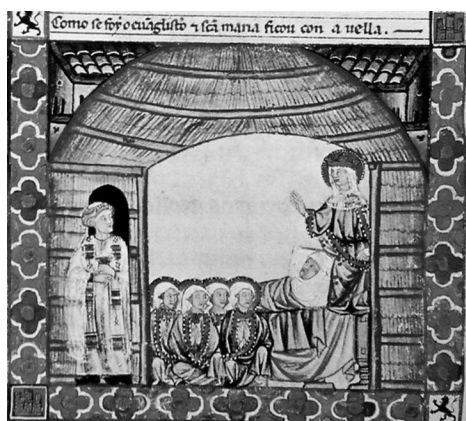 Como se foy o euãglisto ⁊ scã maria ficou con a uella.